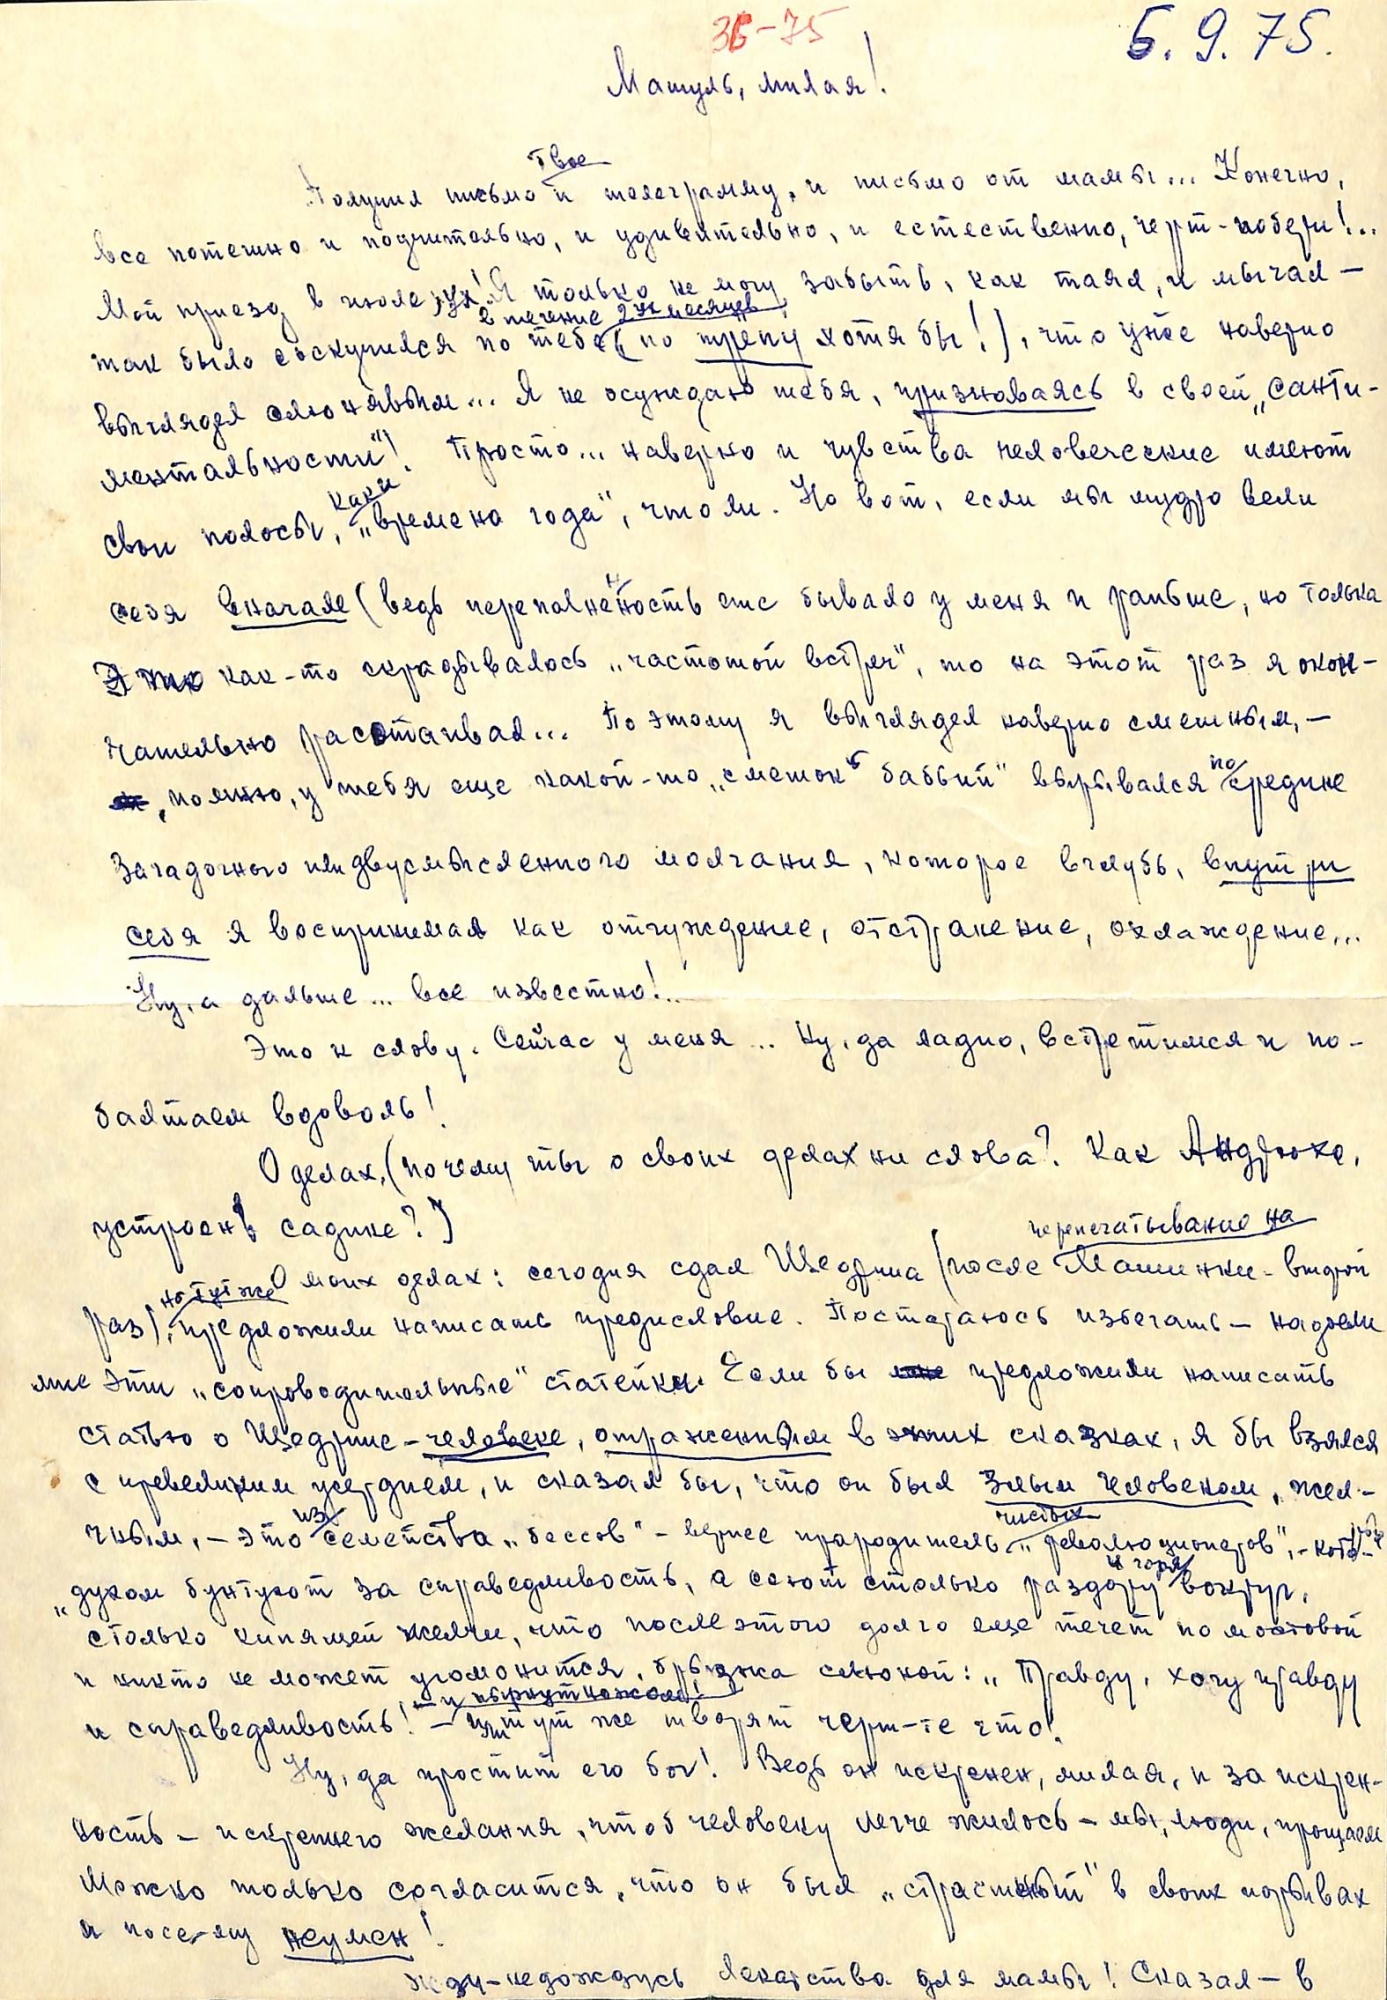 36-75
5.9.75.
Машуль, милая!
твое
Получил письмо и телеграмму, и письмо от мамы... Конечно,
все потешно и подчительно, и удивительно, и естественно, черт-побери!..
Мой приезд в июле, ух! Я только не могу забыть, как таял, и мычал —
в течение 2х месяцев
так было соскучился по тебе (по трепу хотя бы!), что уже наверно
выглядел слюнявым... Я не осуждаю тебя, признаваясь в своей „санти-
ментальности"! Просто... наверно и чувства человеческие имеют
как и
свои полосы, „времена года", что ли. Но вот, если мы мудро вели
себя вначале (ведь переполненность эта бывало у меня и раньше, но только
это как-то скрадывалось „частотой встреч", то на этот раз я окон-
чательно расстаивал... Поэтому я выглядел наверно смешным, —
помню, у тебя еще какой-то „смешок бабьий" вырывался посредине
загадочного или двусмысленного молчания, которое вглубь, внутри
себя я воспринимал как отчуждение, отстранение, охлаждение...
Ну, а дальше... все известно!..
Это к слову. Сейчас у меня ... Ну, да ладно, встретимся и по-
балтаем вдоволь!
О делах, (почему ты о своих делах ни слова? Как Андрюхе,
устроен в садике?)
перепечатывание на
О моих делах: сегодня сдал Щедрина (после Машинки - второй
но тут же
раз), предложили написать предисловие. Постараюсь избегать — надоели
мне эти „сопроводительные" статейки. Если бы предложили написать
статью о Щедрине - человеке, отраженным в этих сказках, я бы взялся
с превеликим усердием, и сказал бы, что он был злым человеком, жел-
из чистых
чным, — это семейства „бессов" - вернее прародитель „революционеров",
и горя
„духом бунтуют за справедливость, а сеют столько раздору вокруг,
столько кипящей желчи, что после этого долго еще течет по мостовой
и никто не может угомонится, брызжа слюной: „Правду, хочу правду
и пырнут ножом!
и справедливость! — тут же творят черт-те что!
Ну, да простит его бог! Ведь он искренен, милая, и за искрен-
ность — искреннего желания, чтоб человеку легче жилось — мы, люди, прощаем
Можно только согласится, что он был „страстный" в своих порывах
и посему неумен!
Жду-недождусь лекарства для мамы! Сказал — в